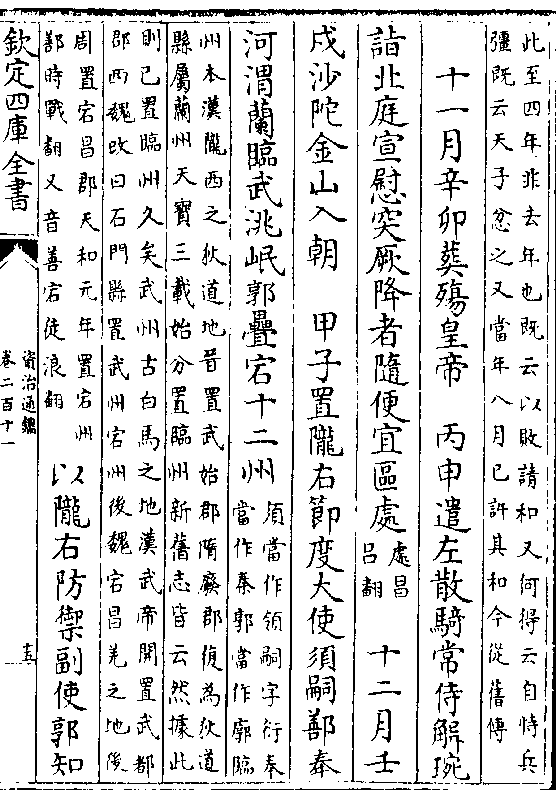 此至四年非去年也既云以敗請和又何得云自恃兵
彊既云天子忿之又當年八月已許其和今從舊傳
十一月辛卯葬殤皇帝　丙申遣左散騎常侍解琬
詣北庭宣慰突厥降者隨便宜區處
處昌
呂翻
十二月壬
戍沙陀金山入朝　甲子置隴右節度大使須嗣鄯奉
河渭蘭臨武洮岷郭疊宕十二州
須當作領嗣字衍奉
當作秦郭當作廓臨
州本漢隴西之狄道地晉置武始郡隋廢郡復為狄道
縣屬蘭州天寶三載始分置臨州新舊志皆云然據此
則已置臨州久矣武州古白馬之地漢武帝開置武都
郡西魏改曰石門縣置武州宕州後魏宕昌羌之地後
周置宕昌郡天和元年置宕州
鄯時戰翻又音善宕徒浪翻
以隴右防禦副使郭知
欽定四庫全書
資治通鑑
卷二百十一
十五